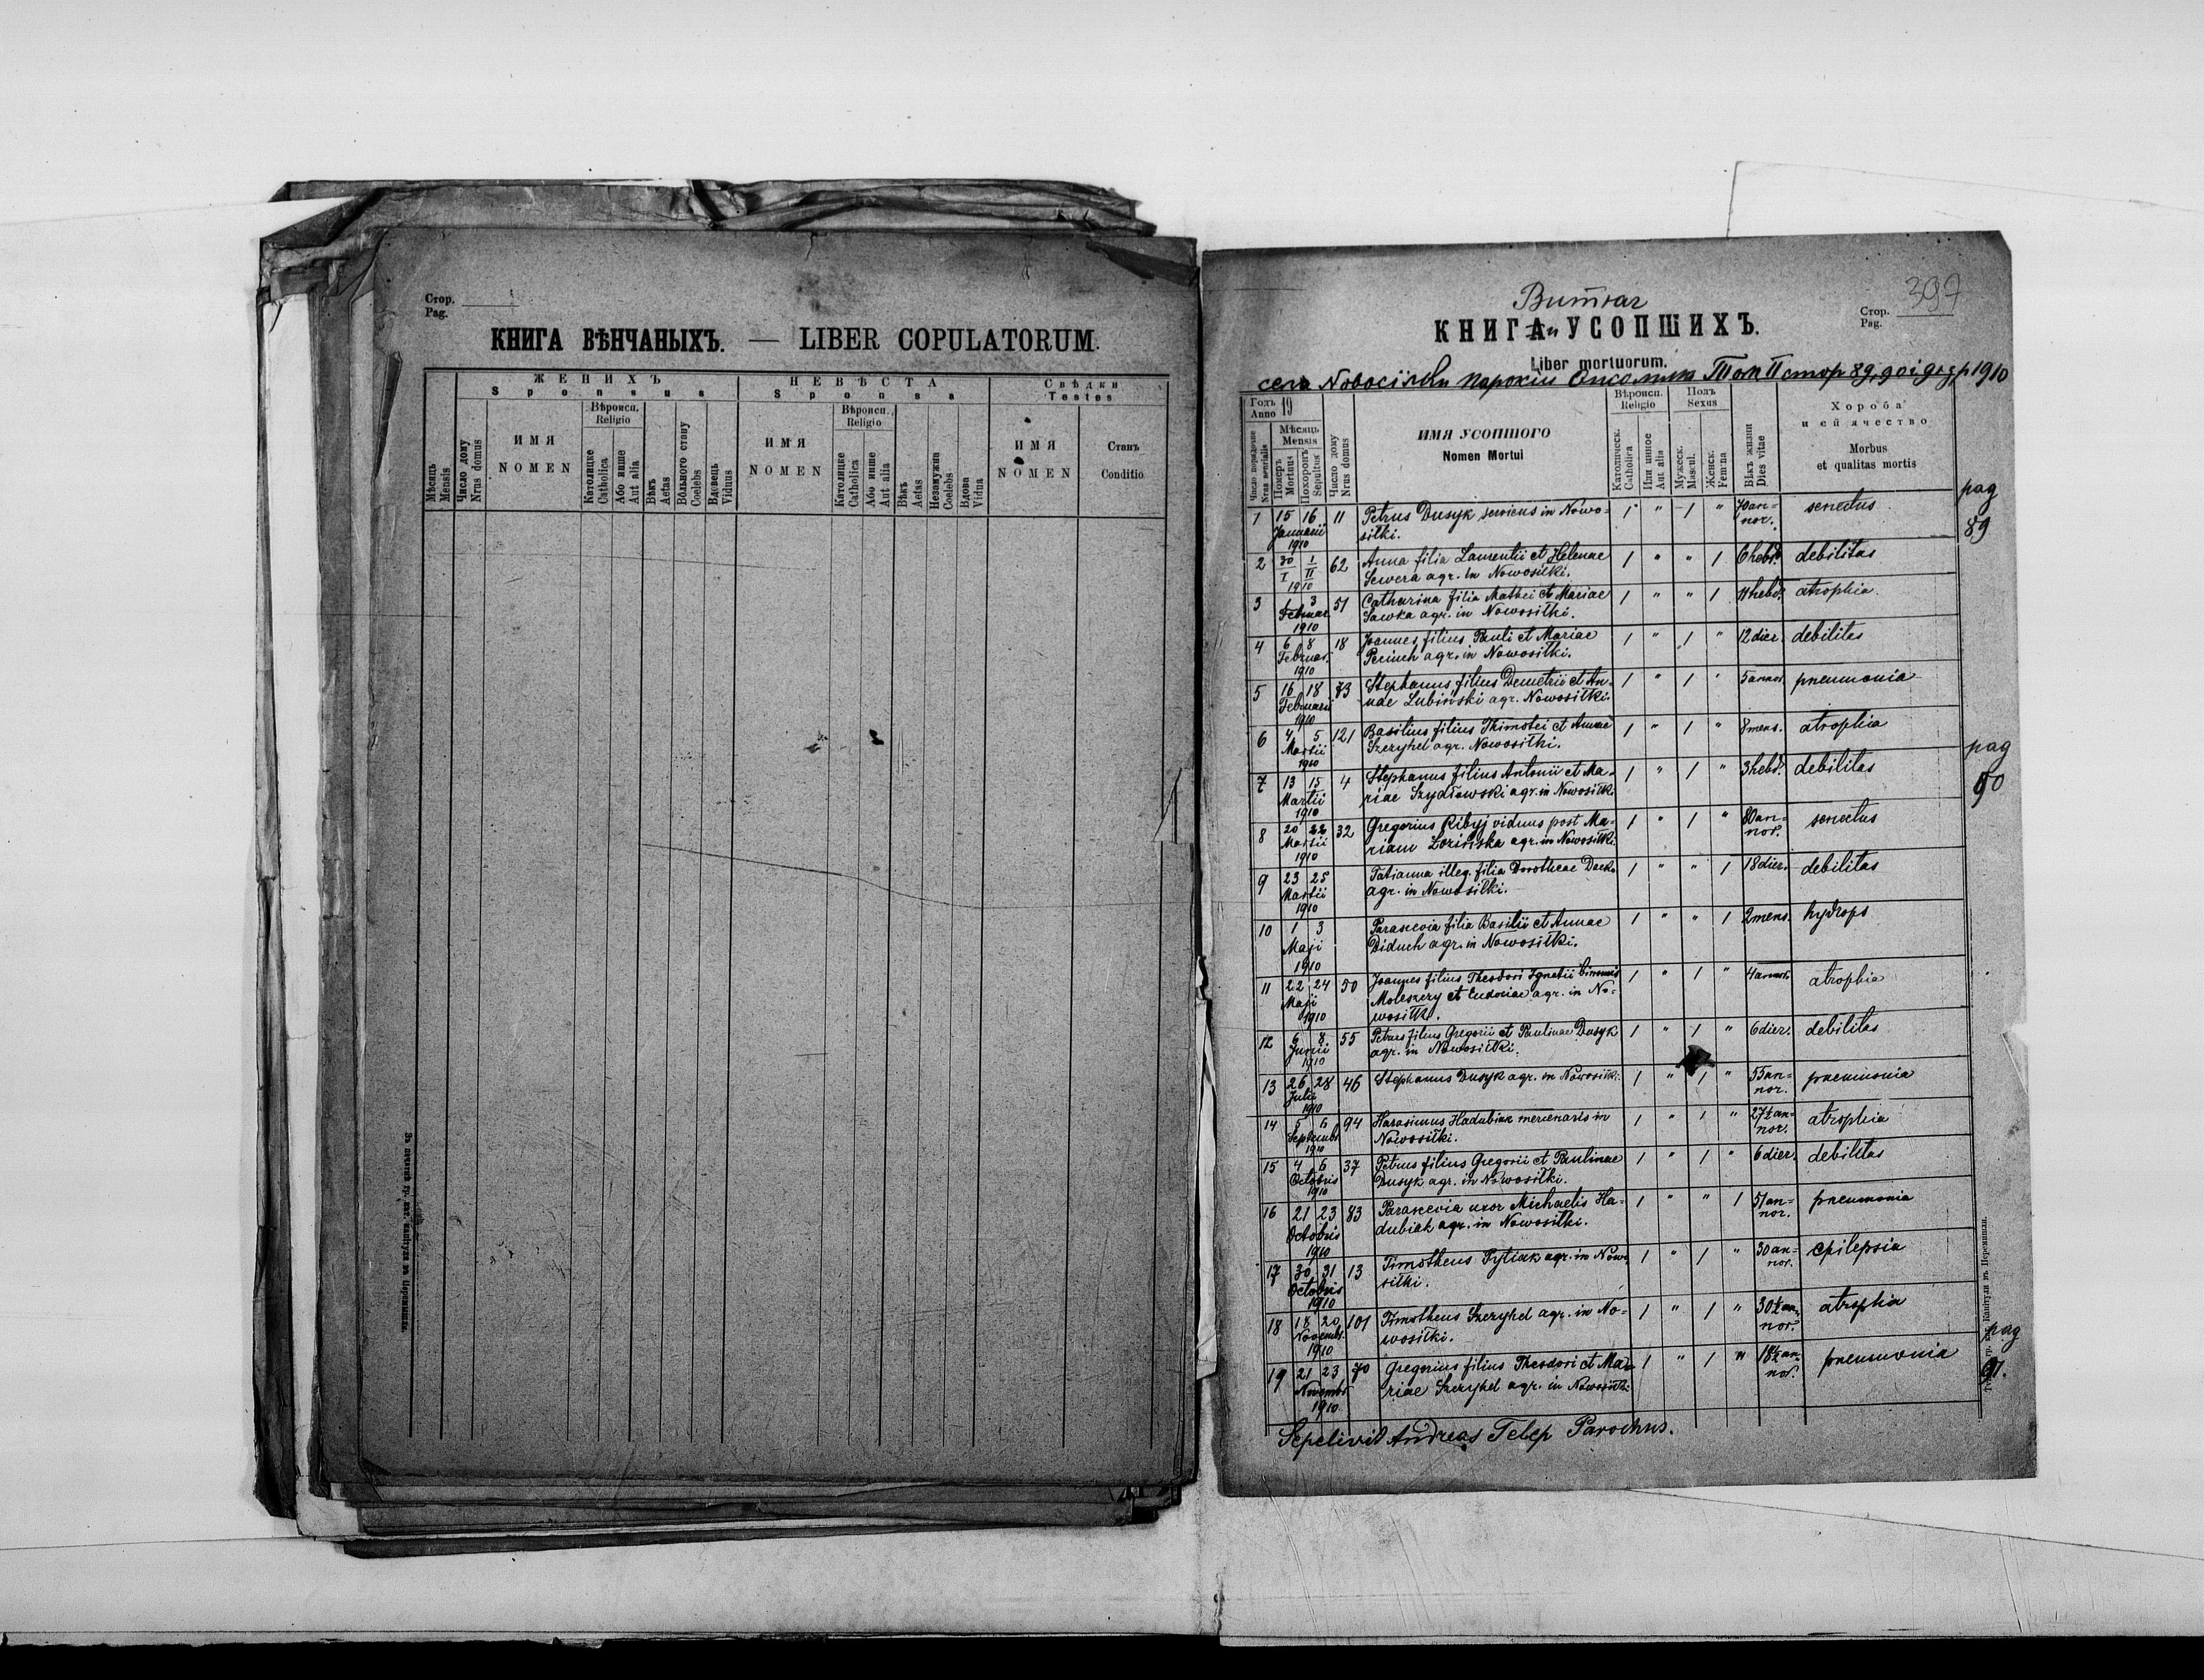 Стор.
Pag.
КНИГА ВѢНЧАНЫХЪ. — LIBER COPULATORUM.
Ж Е Н И Х Ъ
S p o n s u s
Н Е В Ѣ С Т А
S p o n s a
С в ѣ д к и
T e s t e s
Мѣсяць
Mensis
Число дому
Nrus domus
И М Я
N O M E N
Вѣроисп.
Religio
Католицке
Catholica
Або инше
Aut alia
Вѣкъ
Aetas
Вôльного стану
Coelebs
Вдовець
Viduus
И М Я
N O M E N
Вѣроисп.
Religio
Католицке
Catholica
Або инше
Aut alia
Вѣкъ
Aetas
Незамужна
Coelebs
Вдова
Vidua
И М Я
N O M E N
Станъ
Conditio
397
Стор.
Pag.
КНИГА УСОПШИХЪ.
Liber mortuorum.
села Новосілки парохии Том II стор 89, 90 i 91 з р 1910
Годъ
Anno 19
Число порядочне
Мѣсяць
Mensis
Померъ
Mortuus
Похоронъ
Sepultus
Число дому
Nrus domus
ИМЯ УСОПШОГО
Nomen Mortui
Вѣроисп.
Religio
Католическ.
Catholica
Или инное
Aut alia
Полъ
Sexus
Мужеск.
Mascul.
Женск.
Femina
Вѣкъ жизни
Dies vitae
Х о р о б а
и е й я ч е с т в о
Morbus
et qualitas mortis
pag
89
1 15 16 11 Petrus Dusyk servicus in Nowo- 1 " 1 " 70 an- senectus
Januarii siłki. nor.
1910
2 30/I 1/II 62 Anna filia Laurentii et Helenae 1 " " 1 6 hebd. debilitas
1910 Sewera agr. in Nowosiłki.
3 1 3 51 Catharina filia Mathei et Mariae 1 " " 1 11 hebd. atrophia.
Februar. Sawka agr. in Nowosiłki.
1910
4 6 8 18 Joannes filius Pauli et Mariae 1 " 1 " 12 dier. debilitas
Februar. Peciuch agr. in Nowosiłki.
1910
5 16 18 73 Stephanus filius Demetrii et An- 1 " 1 " 5 annor. pneumonia
Februarii nae Lubiński agr. Nowosiłki.
1910
6 4 5 121 Basilius filius Thimotei et Annae 1 " 1 " 8 mens. atrophia
Martii Szeryhel agr. Nowosiłki.
1910
pag
90
7 13 15 4 Stephanus filius Antonii et Ma- 1 " 1 " 3 hebd. debilitas
Martii riae Szydłowski agr. in Nowosiłki
1910
8 20 22 32 Gregorius Ribyj viduus post Ma- 1 " 1 " 80 an- senectus
Martii riam Łozińska agr. in Nowosiłki nor.
1910
9 23 25 Tatianna illeg. filia Dorotheae 1 " " 1 18 dier. debilitas
Martii agr. in Nowosiłki.
1910
10 1 3 Parascevia filia Basilii et Annae 1 " " 1 2 mens. hydrops
Maji Diduch agr. in Nowosiłki.
1910
11 22 24 50 Joannes filius Theodori Ignatii binomis 1 " 1 " 4 annor. atrophia
Maji Moleszczy et Eudociae agr. in No-
1910 wosiłki.
12 6 8 55 Petrus filius Gregorii et Paulinae Dusyk 1 " 1 " 6 dier. debilitas
Junii agr. in Nowosiłki.
1910
13 26 28 46 Stephanus Dusyk agr. in Nowosiłki. 1 " 1 " 55 an- pneumonia
Julii nor.
1910
14 5 6 94 Harasimus Hadubiak mercenaris in 1 " 1 " 27½ an- atrophia
Septembr. Nowosiłki. nor.
1910
15 4 6 37 Petrus filius Gregorii et Paulinae 1 " 1 " 6 dier. debilitas
Octobris Dusyk agr. in Nowosiłki.
1910
16 21 23 83 Parascevia uxor Michaelis Ha- 1 " " 1 51 an- pneumonia
Octobris dubiak agr. in Nowosiłki. nor.
1910
17 30 31 13 Timotheus Pytiak agr. in Nowo- 1 " 1 " 30 an- epilepsia
Octobris siłki. nor.
1910
18 18 20 101 Timotheus Szeryhel agr. in No- 1 " 1 " 30½ an- atrophia
Novembr. wosiłki. nor.
1910
pag
91.
19 21 23 70 Gregorius filius Theodori et Ma- 1 " 1 " 18½ an- pneumonia
Novembr. riae Szeryhel agr. in Nowosiłki. nor.
1910
Sepelivit Andreas Telep Parochus.